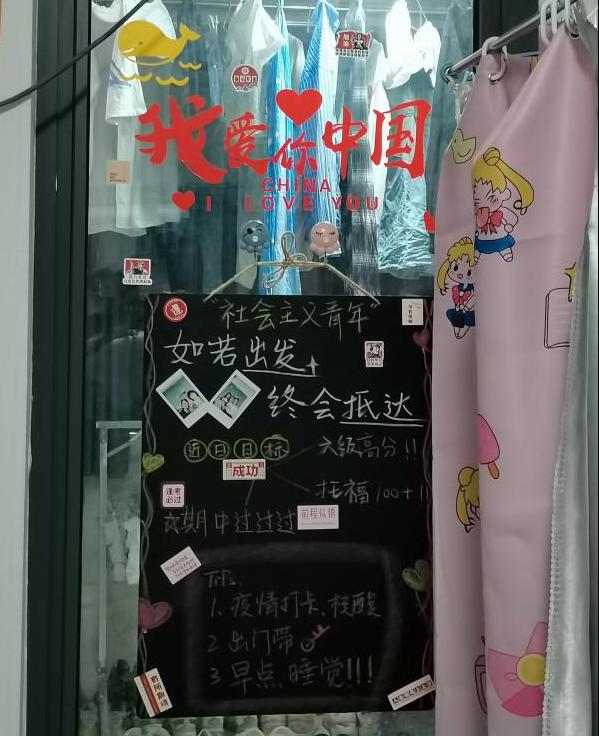 我爱你中国
CHINA
I LOVE YOU
"社会主义青年"
如若出发
终会抵达
近日目标
六级高分!!
成功
托福100+!!
逢考必过
期中过过过
前程似锦
Tips.
1. 疫情打卡、核酸
2 出门带
3 早点睡觉!!!